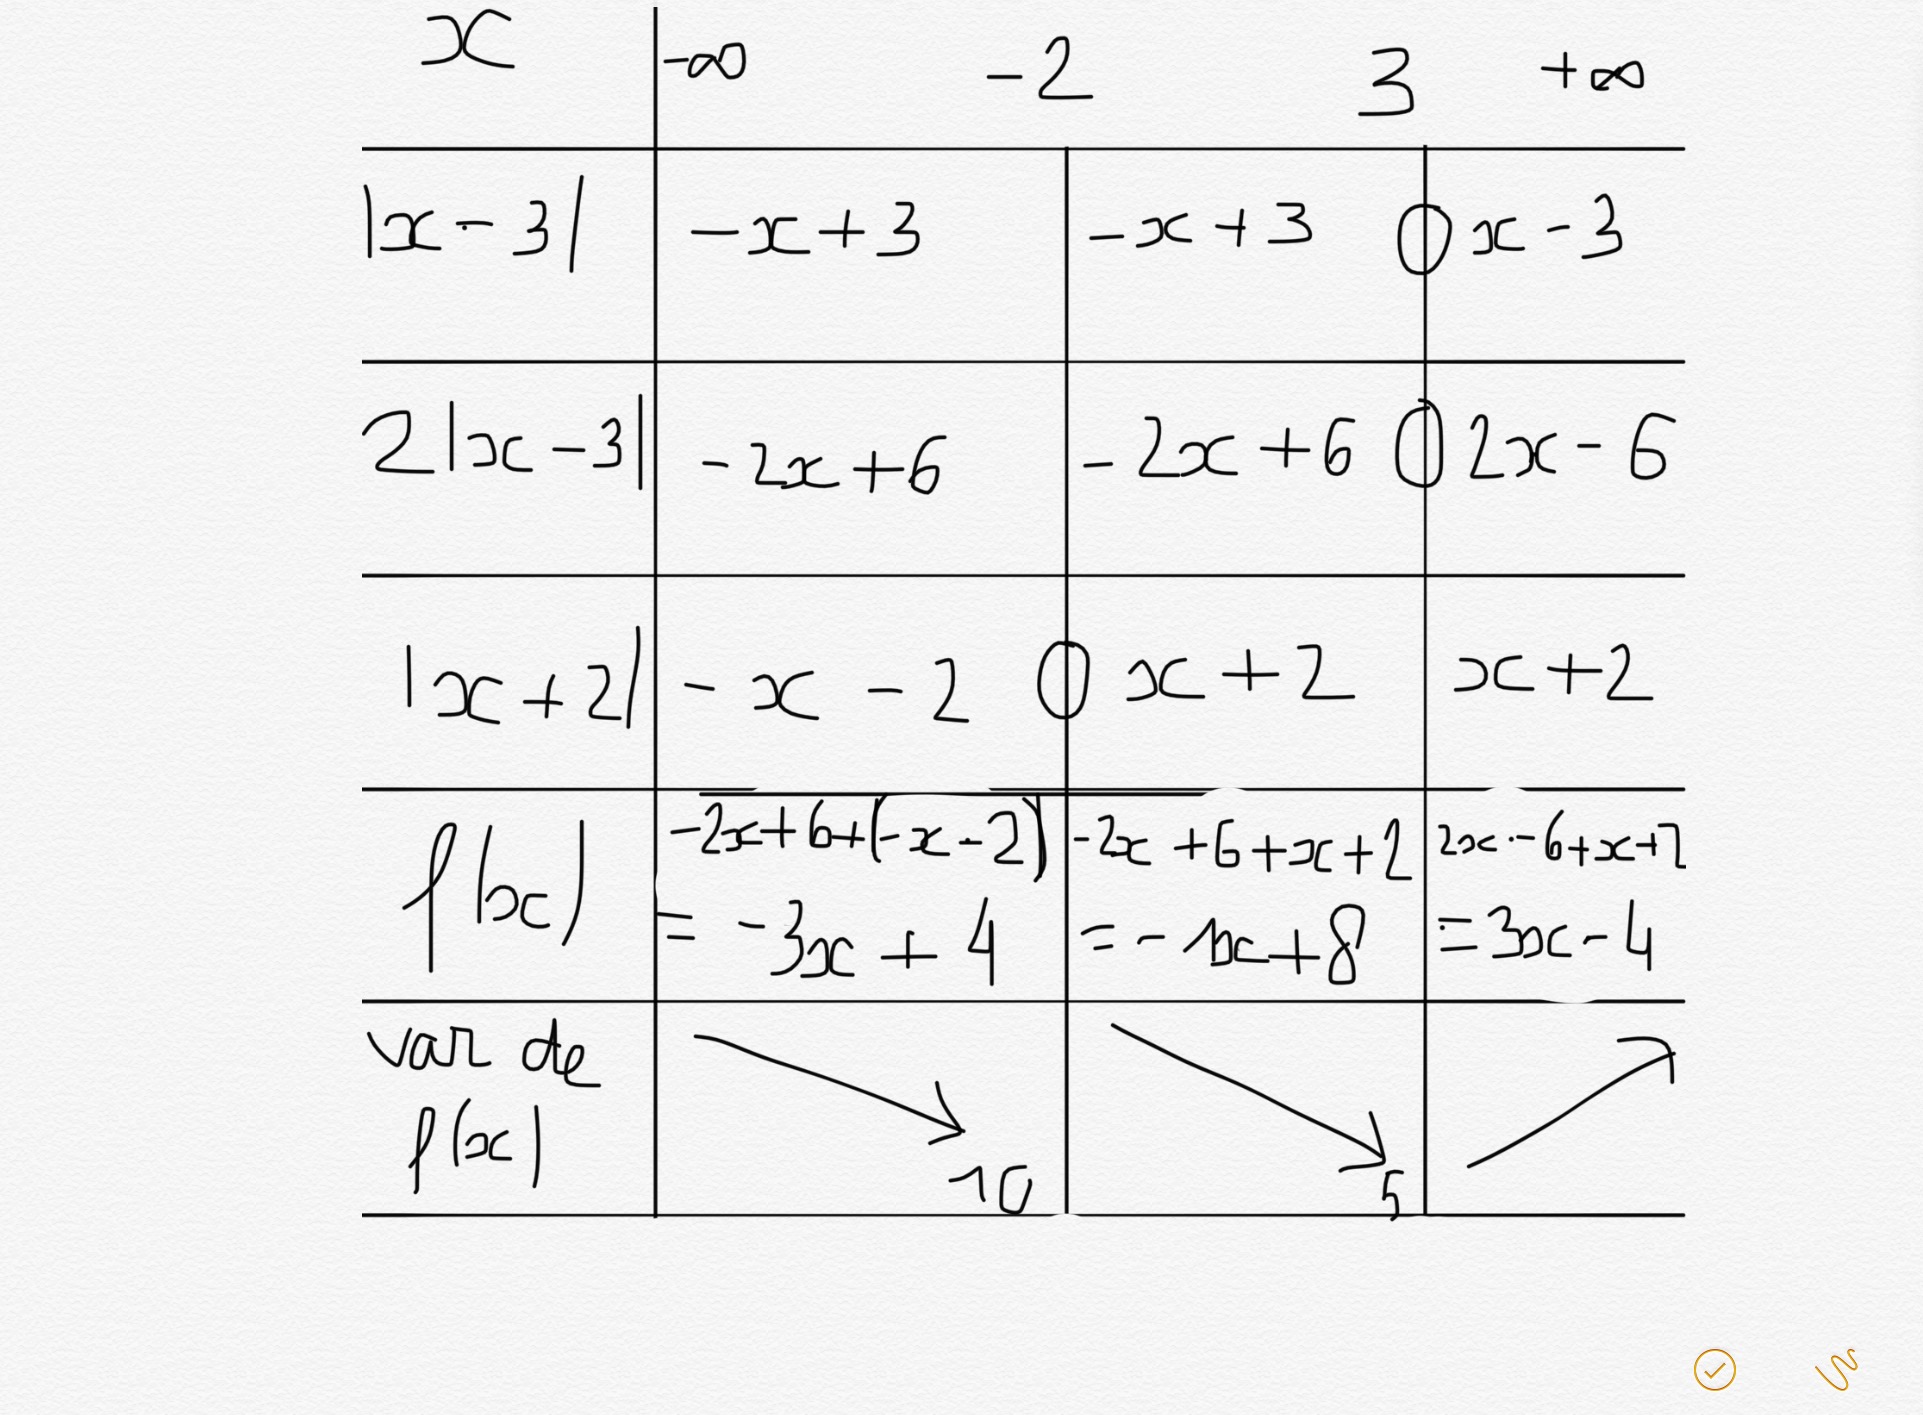 x -∞ -2 3 +∞
|x-3| -x+3 -x+3 0 x-3
2|x-3| -2x+6 -2x+6 0 2x-6
|x+2| -x-2 0 x+2 x+2
f(x) -2x+6+(-x-2) -2x+6+x+2 2x-6+x+2
= -3x+4 =-1x+8 =3x-4
var de
f(x)
10 5